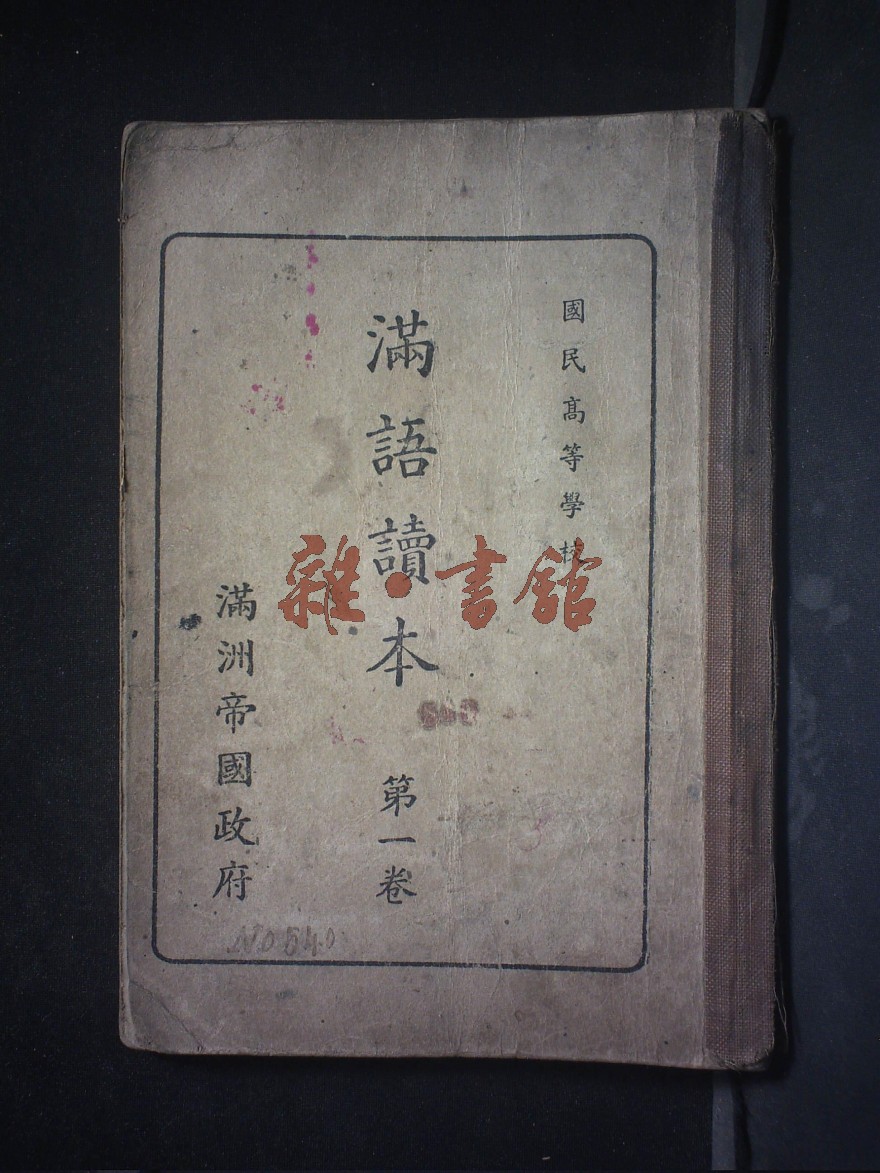 國民高等學校
滿語讀本 第一卷
滿洲帝國政府
雜·書館
NO 540